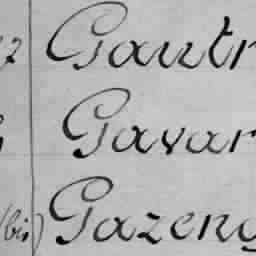 7 Gautr
Gavar
(bis) Gazeng